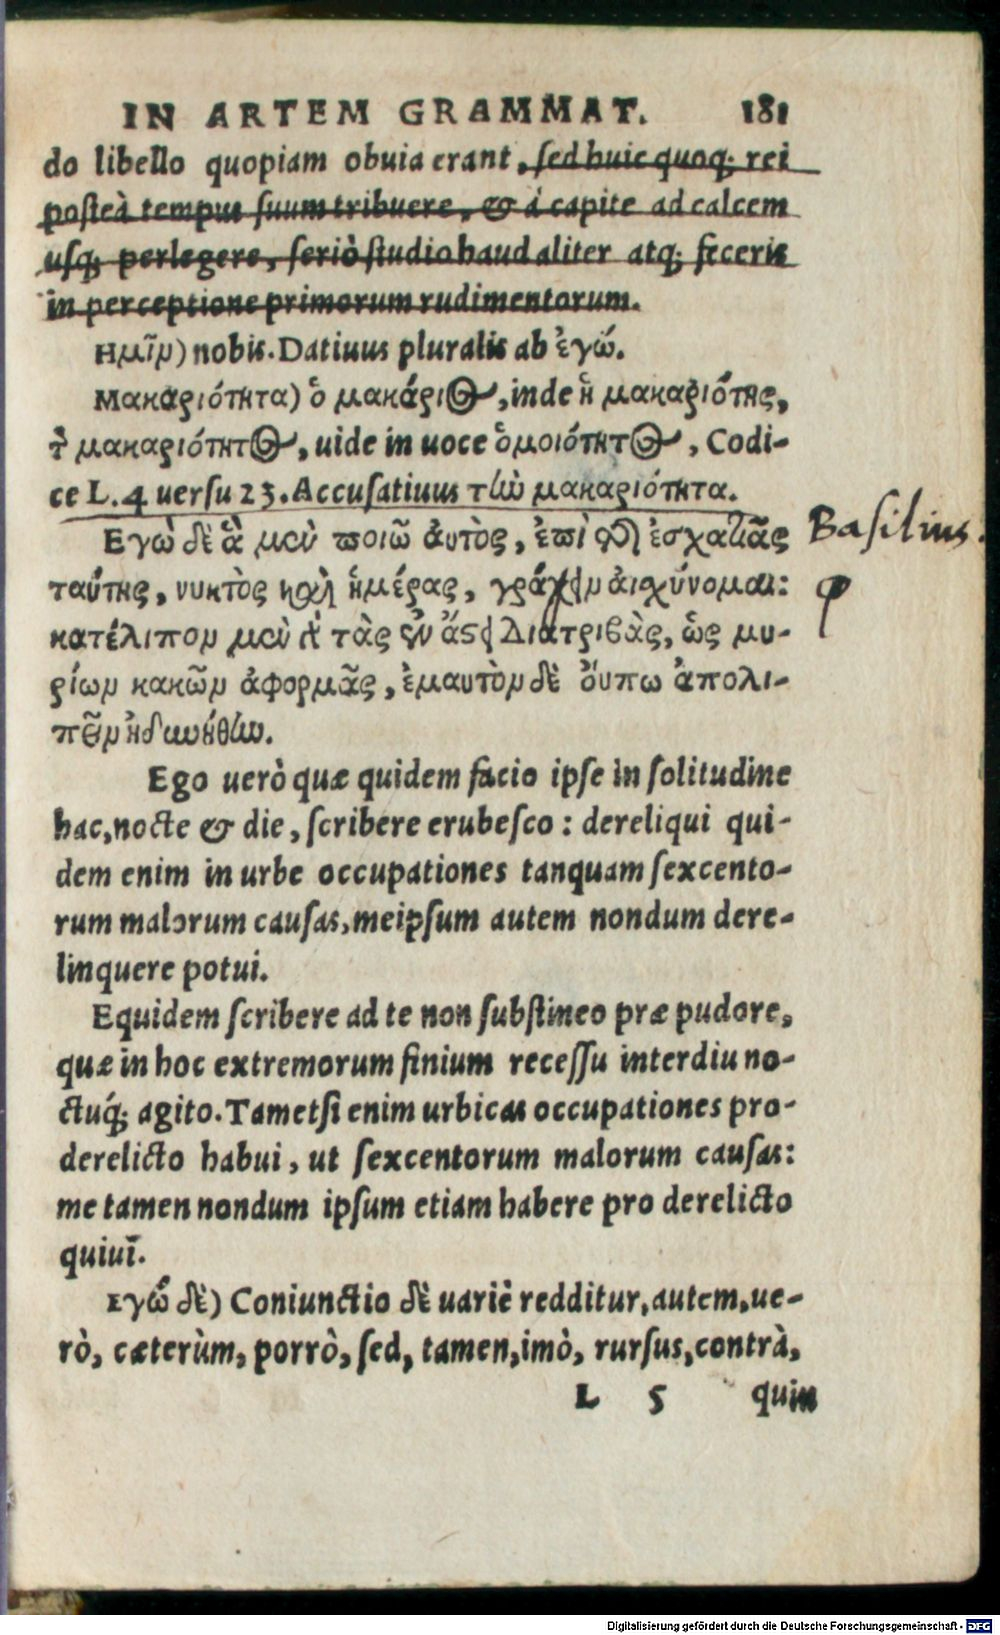 IN ARTEM GRAMMAT. 181
do libello quopiam obuia erant, sed huic quoq; rei
posteà tempus suum tribuere, & à capite ad calcem
usq; perlegere, seriò studio haud aliter atq; feceris
in perceptione primorum rudimentorum.
Ημῖν) nobis. Datiuus pluralis ab ἐγώ.
Μακαριότητα) ὁ μακάριος, inde ἡ μακαριότης,
τ̃ μακαριότητος, uide in uoce ὁμοιότητος, Codi-
ce L. 4 uersu 23. Accusatiuus τὼ μακαριότητα.
Εγὼ δὲ ἃ μὲν ποιῶ ἀυτὸς, ἐπὶ τῆ ἐσχατιᾶς
ταύτης, νυκτὸς καὶ ἡμέρας, γράφειν αἰσχύνομαι:
κατέλιπον μὲν γὰ τὰς ἐν ἄστει διατριβὰς, ὡς μυ-
ρίων κακῶν ἀφορμᾶς, ἐμαυτὸν δὲ ὄυπω ἀπολι-
πεῖν ἠδυνήθω.
Ego uerò quæ quidem facio ipse in solitudine
hac, nocte & die, scribere erubesco: dereliqui qui-
dem enim in urbe occupationes tanquam sexcento-
rum malorum causas, meipsum autem nondum dere-
linquere potui.
Equidem scribere ad te non substineo præ pudore,
quæ in hoc extremorum finium recessu interdiu no-
ctuq́; agito. Tametsi enim urbicas occupationes pro-
derelicto habui, ut sexcentorum malorum causas:
me tamen nondum ipsum etiam habere pro derelicto
quiui.
Εγὼ δὲ) Coniunctio δὲ uariè redditur, autem, ue-
rò, cæterùm, porrò, sed, tamen, imò, rursus, contrà,
L 5 quin
Basilius.
φ
Digitalisierung gefördert durch die Deutsche Forschungsgemeinschaft - DFG